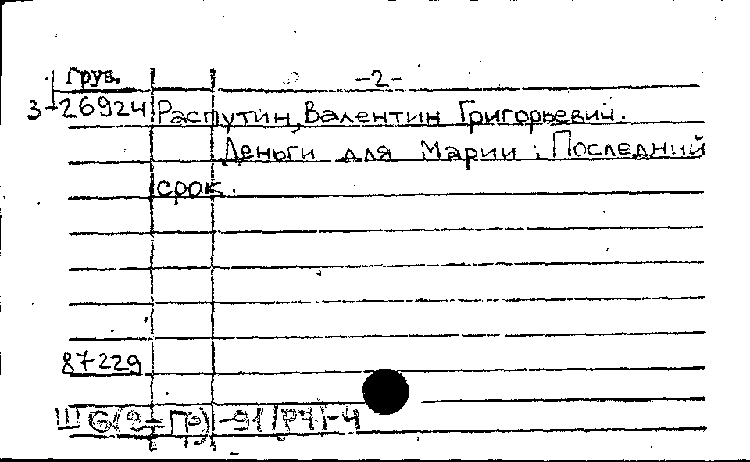 Груз. -2-
3-26924 Распутин, Валентин Григорьевич.
Деньги для Марии; Последний
срок.
87229
Ш6(2=Гр) -91 (Р4)-4